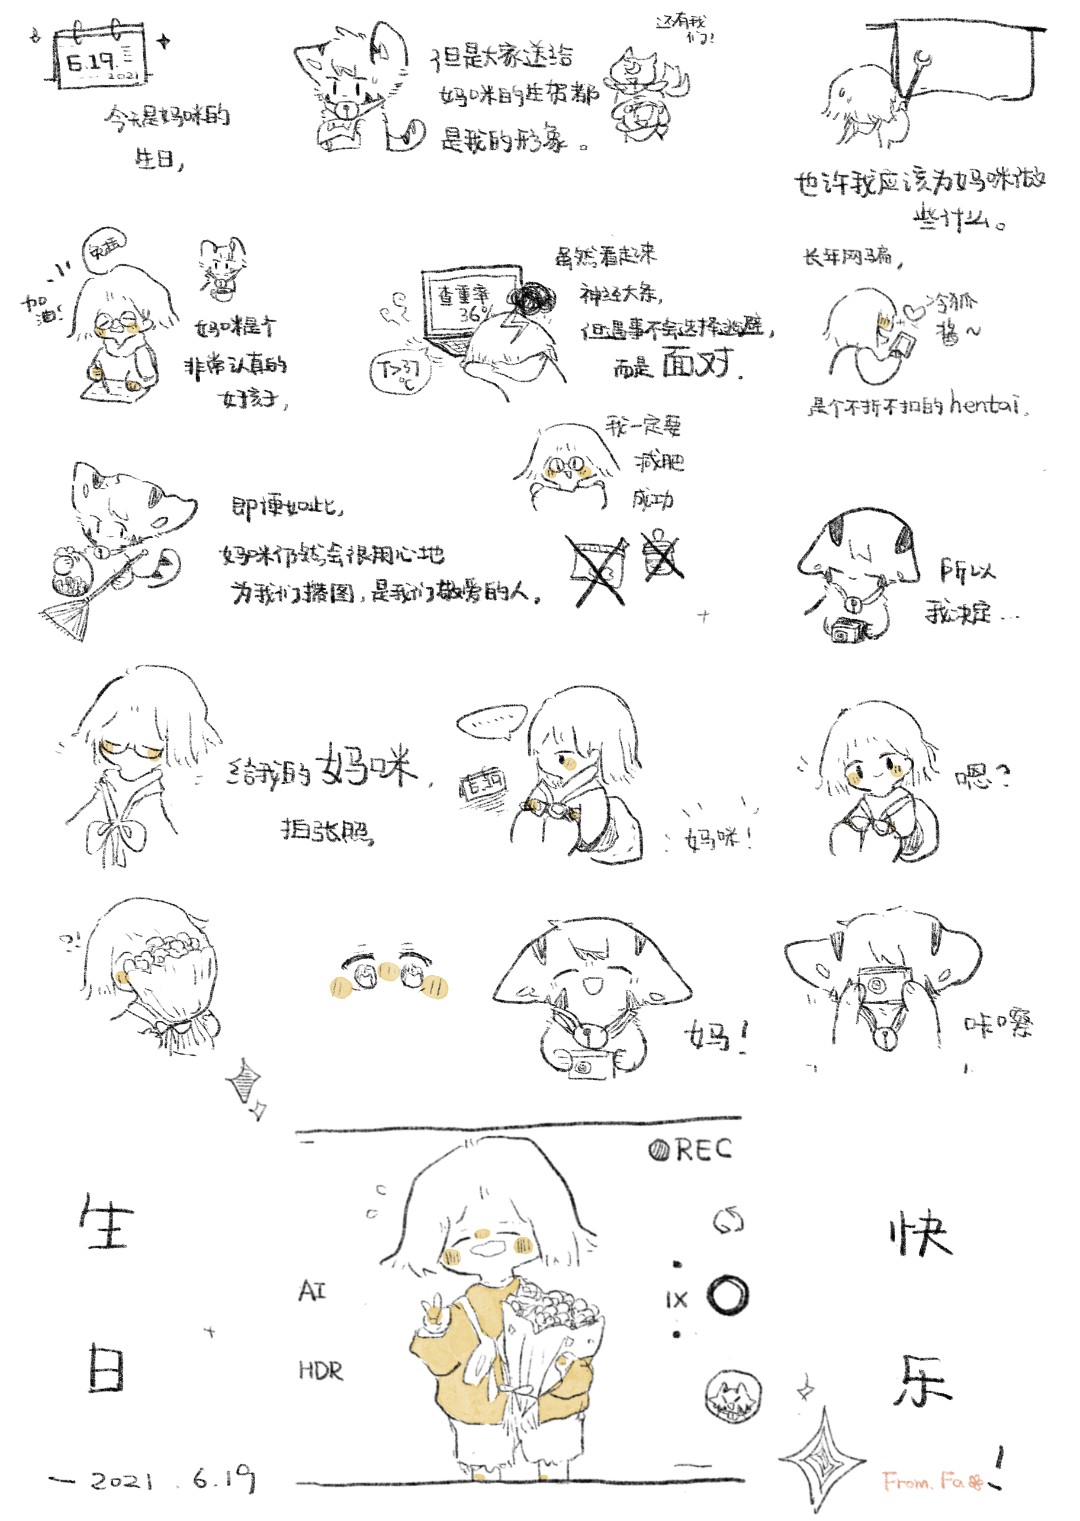 6.19.
2021
今天是妈咪的
生日,
但是大家送给
妈咪的生贺都
是我的形象。
还有我
们!
也许我应该为妈咪做
些什么。
加
油!
妈咪是个
非常认真的
好孩子,
查重率
36%
T>37
℃
虽然看起来
神经大条,
但遇事不会选择逃避,
而是面对.
长年网骗,
冷狐
酱~
是个不折不扣的hentai.
即便如此,
妈咪仍然会很用心地
为我们摸图,是我们敬爱的人。
我一定要
减肥
成功
所以
我决定…
给我的妈咪,
拍张照。
......
6.19
妈咪!
嗯?
?!
妈!
咔嚓
REC
AI
HDR
1X
生
日
快
乐
!
— 2021 . 6.19
From. Fa